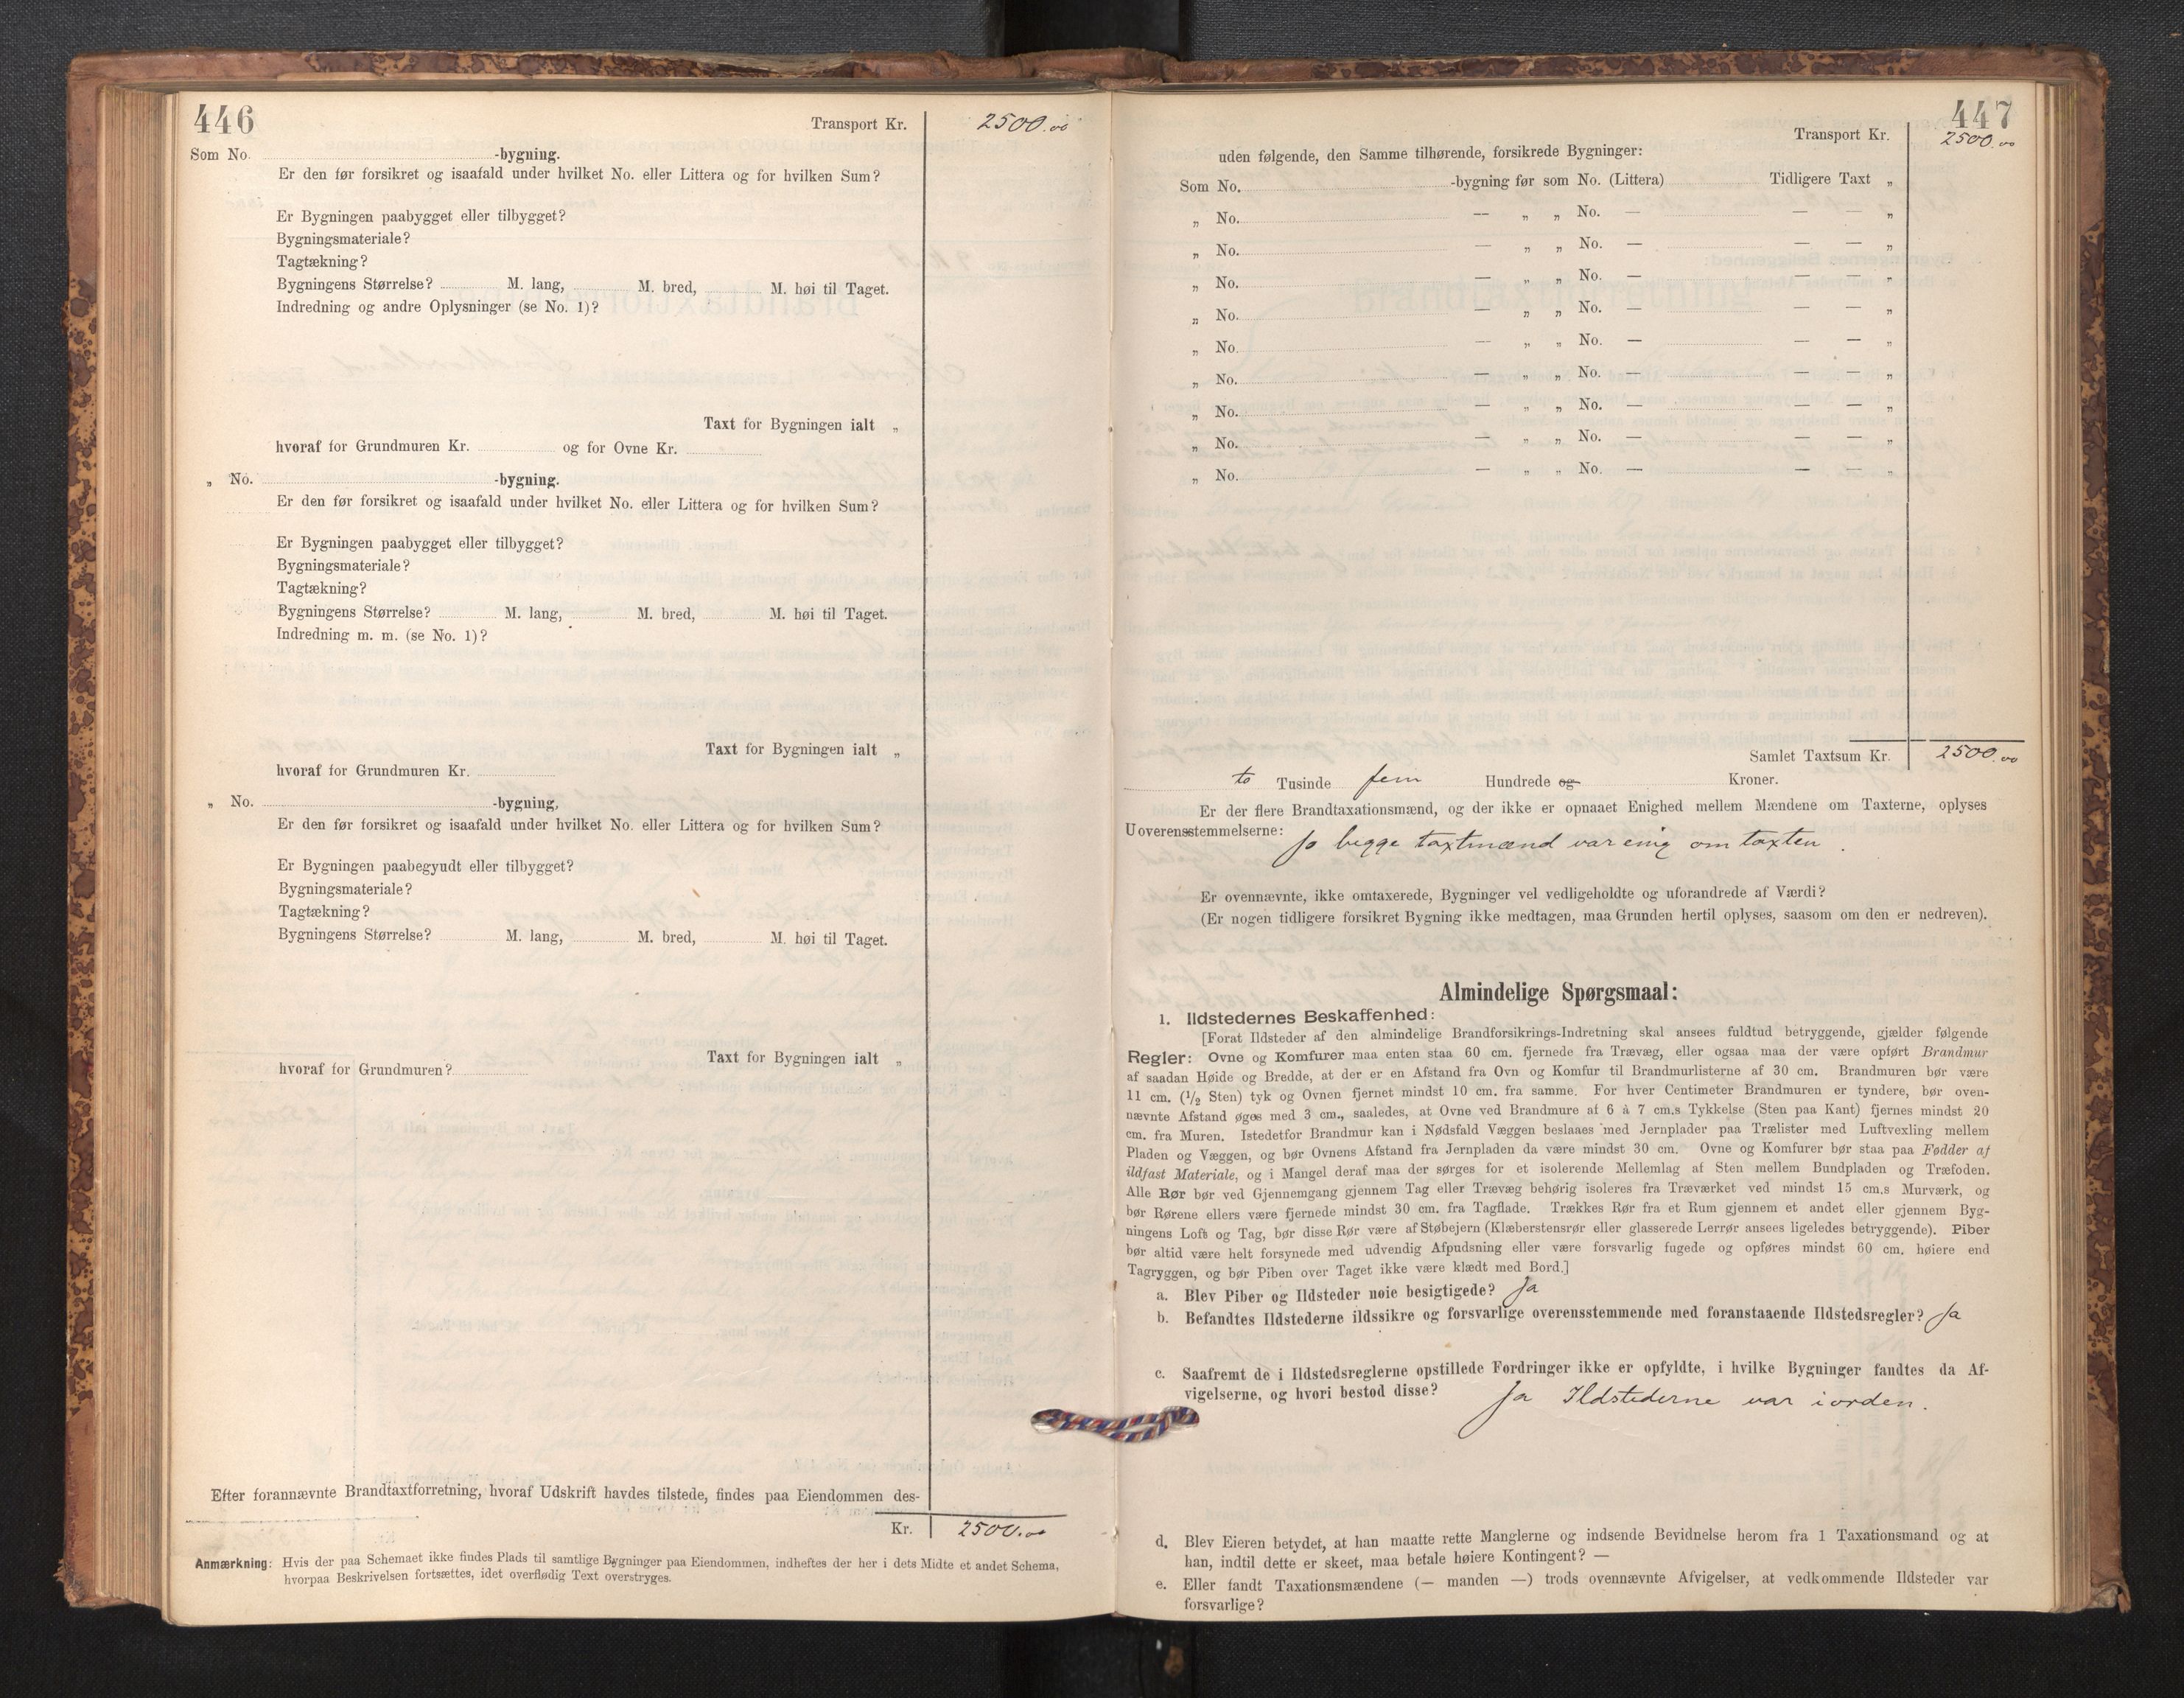 446
Transport Kr. 2500.00
Som No. -bygning.
Er den før forsikret og isaafald under hvilket No. eller Littera og for hvilken Sum?
Er Bygningen paabygget eller tilbygget?
Bygningsmateriale?
Tagtækning?
Bygningens Størrelse? M. lang, M. bred, M. høi til Taget.
Indredning og andre Oplysninger (se No. 1)?
Taxt for Bygningen ialt „
hvoraf for Grundmuren Kr. og for Ovne Kr.
„ No. -bygning.
Er den før forsikret og isaafald under hvilket No. eller Littera og for hvilken Sum?
Er Bygningen paabygget eller tilbygget?
Bygningsmateriale?
Tagtækning?
Bygningens Størrelse? M. lang, M. bred, M. høi til Taget.
Indredning m. m. (se No. 1)?
Taxt for Bygningen ialt „
hvoraf for Grundmuren Kr.
„ No. -bygning,
Er den før forsikret og isaafald under hvilket No. eller Littera og for hvilken Sum?
Er Bygningen paabegyndt eller tilbygget?
Bygningsmateriale?
Tagtækning?
Bygningens Størrelse? M. lang, M. bred, M. høi til Taget.
Taxt for Bygningen ialt „
hvoraf for Grundmuren?
Efter forannævnte Brandtaxtforretning, hvoraf Udskrift havdes tilstede, findes paa Eiendommen des-
Kr. 2500.00
Anmærkning: Hvis der paa Schemaet ikke findes Plads til samtlige Bygninger paa Eiendommen, indheftes der her i dets Midte et andet Schema,
hvorpaa Beskrivelsen fortsættes, idet overflødig Text overstryges.
447
Transport Kr. 2500.00
uden følgende, den Samme tilhørende, forsikrede Bygninger:
Som No. -bygning før som No. (Littera) Tidligere Taxt „
„ No. — „ „ No. — — — „
„ No. — „ „ No. — — — „
„ No. — „ „ No. — — — „
„ No. — „ „ No. — — — „
„ No. — „ „ No. — — — „
„ No. — „ „ No. — — — „
„ No. — „ „ No. — — — „
„ No. — „ „ No. — — — „
„ No. — „ „ No. — — — „
Samlet Taxtsum Kr. 2500.00
to Tusinde fem Hundrede og Kroner.
Er der flere Brandtaxationsmænd, og der ikke er opnaaet Enighed mellem Mændene om Taxterne, oplyses
Uoverensstemmelserne:
Ja begge taxtmænd var enig om taxten.
Er ovennævnte, ikke omtaxerede, Bygninger vel vedligeholdte og uforandrede af Værdi?
(Er nogen tidligere forsikret Bygning ikke medtagen, maa Grunden hertil oplyses, saasom om den er nedreven).
Almindelige Spørgsmaal:
1. Ildstedernes Beskaffenhed:
[Forat Ildsteder af den almindelige Brandforsikrings-Indretning skal ansees fuldtud betryggende, gjælder følgende
Regler: Ovne og Komfurer maa enten staa 60 cm. fjernede fra Trævæg, eller ogsaa maa der være opført Brandmur
af saadan Høide og Bredde, at der er en Afstand fra Ovn og Komfur til Brandmurlisterne af 30 cm. Brandmuren bør være
11 cm. (1/2 Sten) tyk og Ovnen fjernet mindst 10 cm. fra samme. For hver Centimeter Brandmuren er tyndere, bør oven-
nævnte Afstand øges med 3 cm., saaledes, at Ovne ved Brandmure af 6 à 7 cm.s Tykkelse (Sten paa Kant) fjernes mindst 20
cm. fra Muren. Istedetfor Brandmur kan i Nødsfald Væggen beslaaes med Jernplader paa Trælister med Luftvexling mellem
Pladen og Væggen, og bør Ovnens Afstand fra Jernpladen da være mindst 30 cm. Ovne og Komfurer bør staa paa Fødder af
ildfast Materiale, og i Mangel deraf maa der sørges for et isolerende Mellemlag af Sten mellem Bundpladen og Træfoden.
Alle Rør bør ved Gjennemgang gjennem Tag eller Trævæg behørig isoleres fra Træværket ved mindst 15 cm.s Murværk, og
bør Rørene ellers være fjernede mindst 30 cm. fra Tagflade. Trækkes Rør fra et Rum gjennem et andet eller gjennem Byg-
ningens Loft og Tag, bør disse Rør være af Støbejern (Klæberstensrør eller glasserede Lerrør ansees ligeledes betryggende). Piber
bør altid være helt forsynede med udvendig Afpudsning eller være forsvarlig fugede og opføres mindst 60 cm. høiere end
Tagryggen, og bør Piben over Taget ikke være klædt med Bord.]
a. Blev Piber og Ildsteder nøie besigtigede? Ja
b. Befandtes Ildstederne ildssikre og forsvarlige overensstemmende med foranstaaende Ildstedsregler? Ja
c. Saafremt de i Ildstedsreglerne opstillede Fordringer ikke er opfyldte, i hvilke Bygninger fandtes da Af-
vigelserne, og hvori bestod disse? Ja Ildstederne var i orden.
d. Blev Eieren betydet, at han maatte rette Manglerne og indsende Bevidnelse herom fra 1 Taxationsmand og at
han, indtil dette er skeet, maa betale høiere Kontingent? —
e. Eller fandt Taxationsmændene (— manden —) trods ovennævnte Afvigelser, at vedkommende Ildsteder var
forsvarlige?